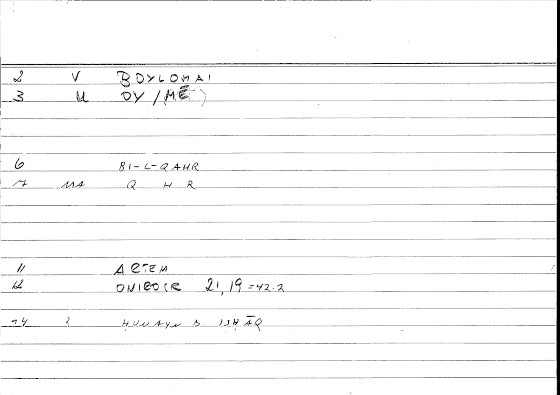 2 V BOYLOMAI
3 U OY/(MĒ)
6 BI-L-QAHR
7 MA Q H R
11 ARTEM
12 ONIROCR 21,19=42.2
14 2 HUNAYN B ISHĀQ